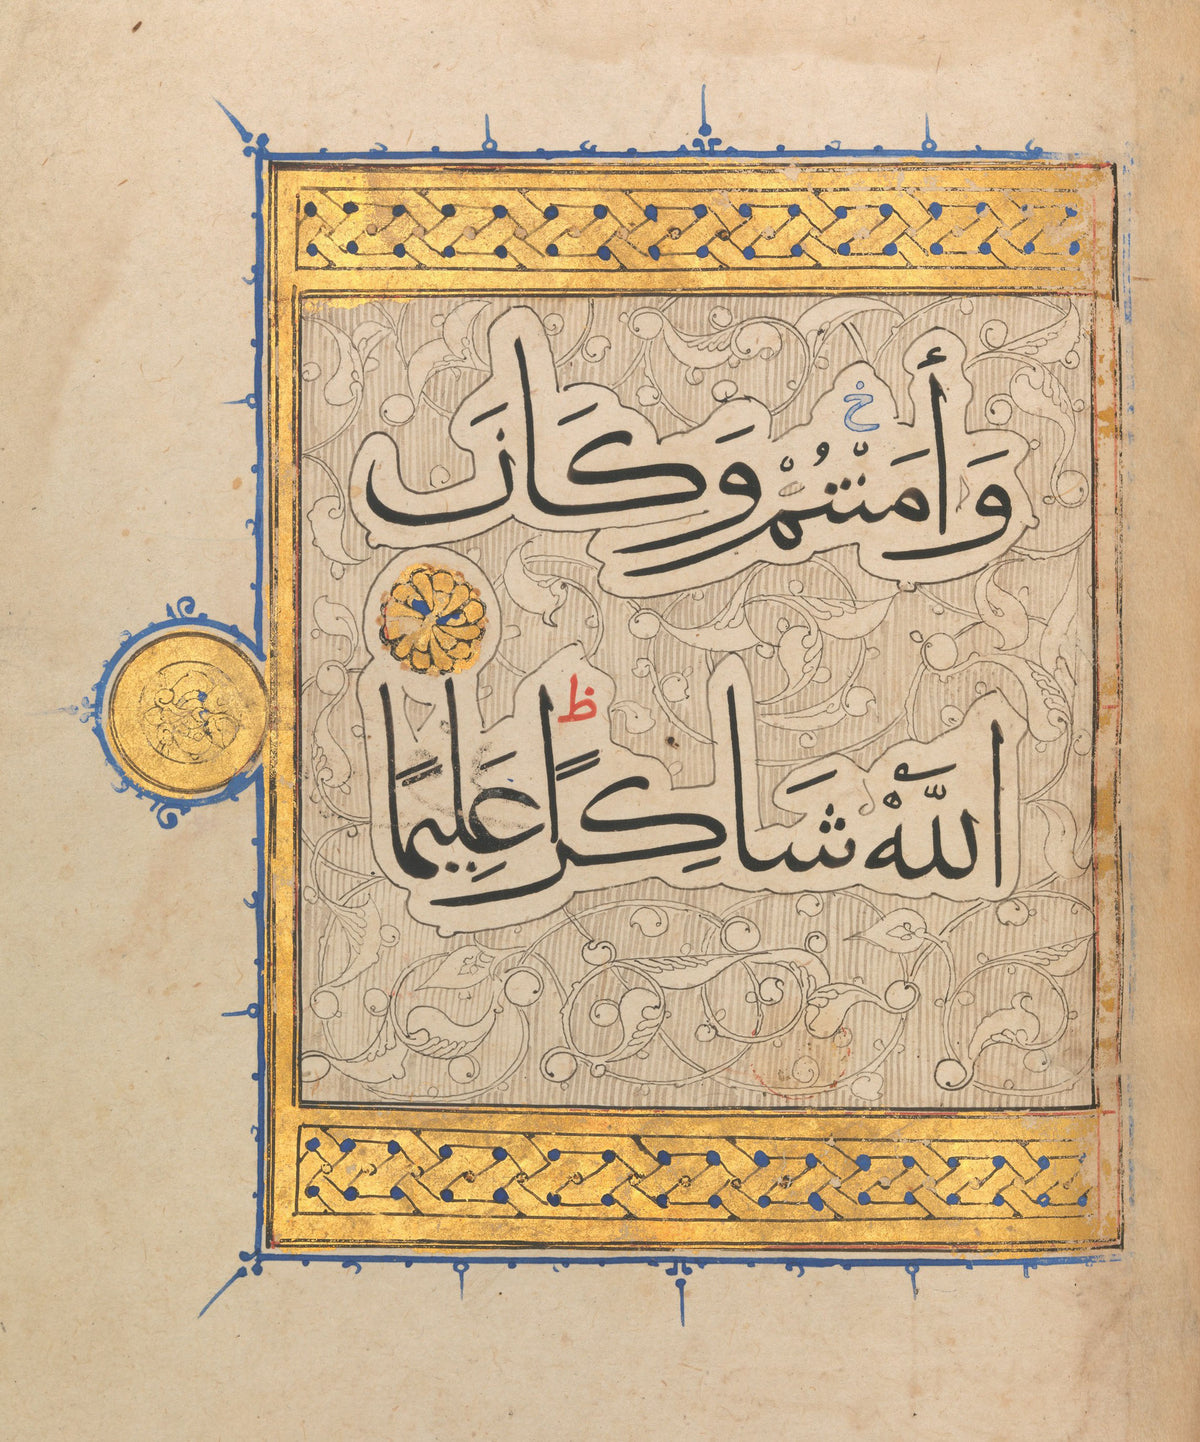 وَأَمَنتُمْ وَكَانَ
اللَّهُ شَاكِرًا عَلِيمًا
خ
ظ